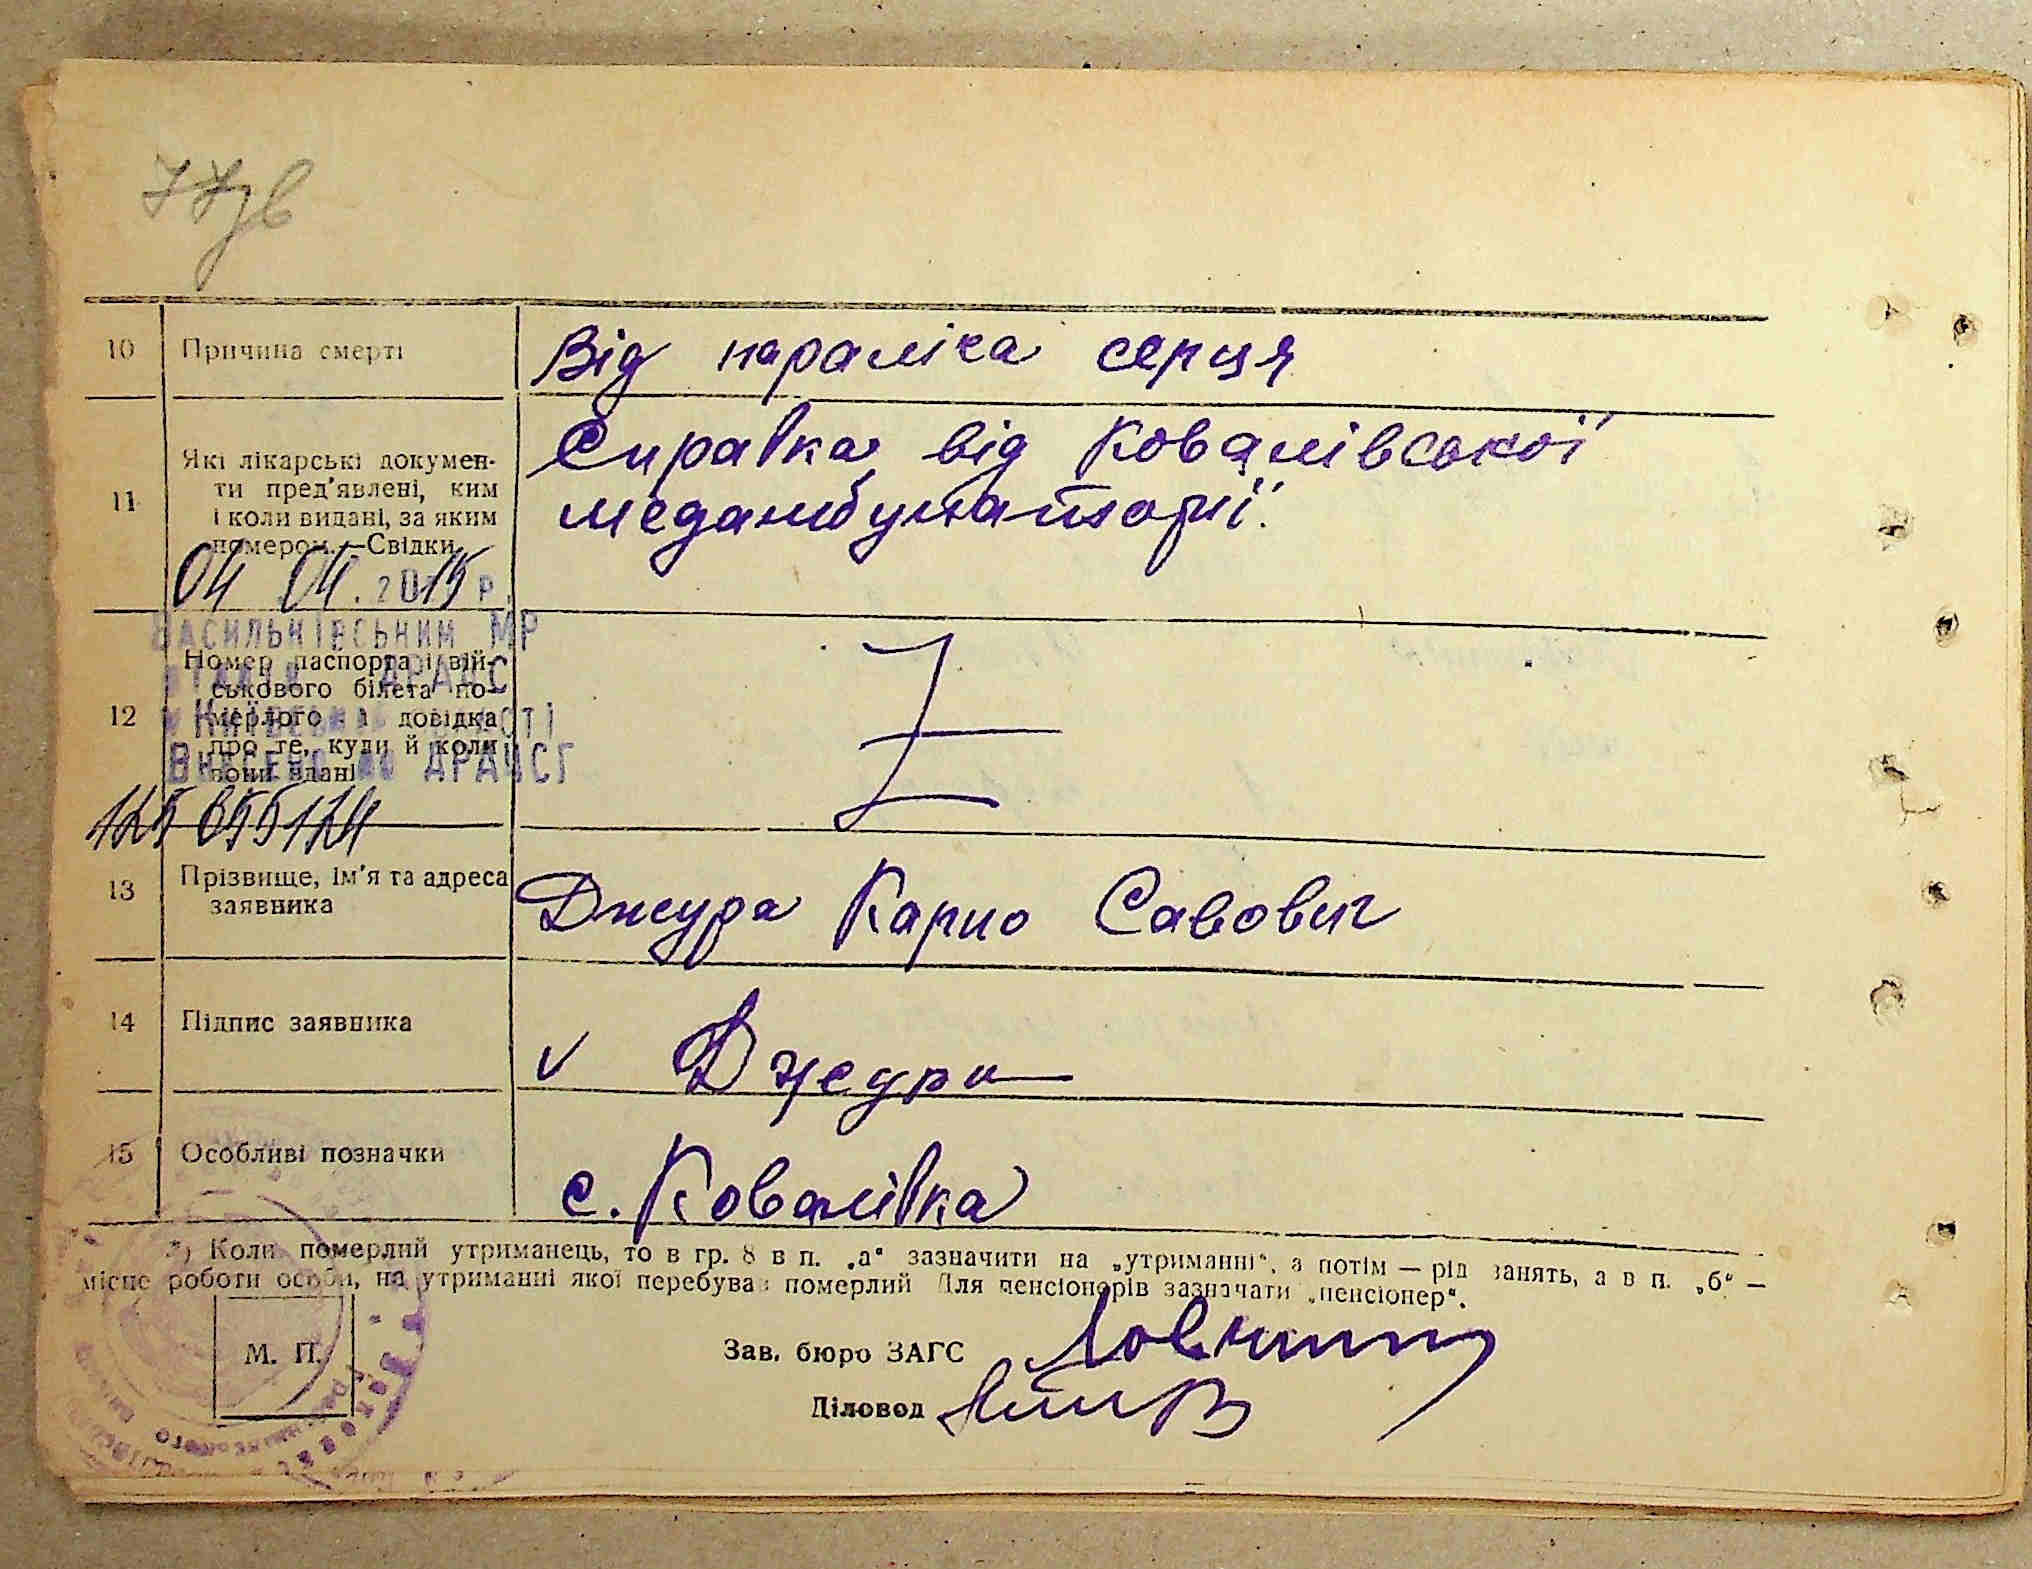 77зв
10 Причина смерті Від параліча серця
11 Які лікарські докумен-
ти пред'явлені, ким
і коли видані, за яким
номером.—Свідки
Справка від Ковалівської
медамбулаторії.
04 04. 2015 р.
ВАСИЛЬКІВСЬКИМ МР
ДРАЦС
12 Номер паспорта і вій-
ськового білета по-
мерлого і довідка
про те, куди й коли
вони здані
Z
13 Прізвище, ім'я та адреса
заявника
Джура Карпо Савович
14 Підпис заявника v Джура
15 Особливі позначки с. Ковалівка
*) Коли померлий утриманець, то в гр. 8 в п. „а“ зазначити на „утриманні“, а потім — рід занять, а в п. „б“ —
місце роботи особи, на утриманні якої перебував померлий Для пенсіонерів зазначати „пенсіонер“.
М. П.
Зав. бюро ЗАГС
Діловод